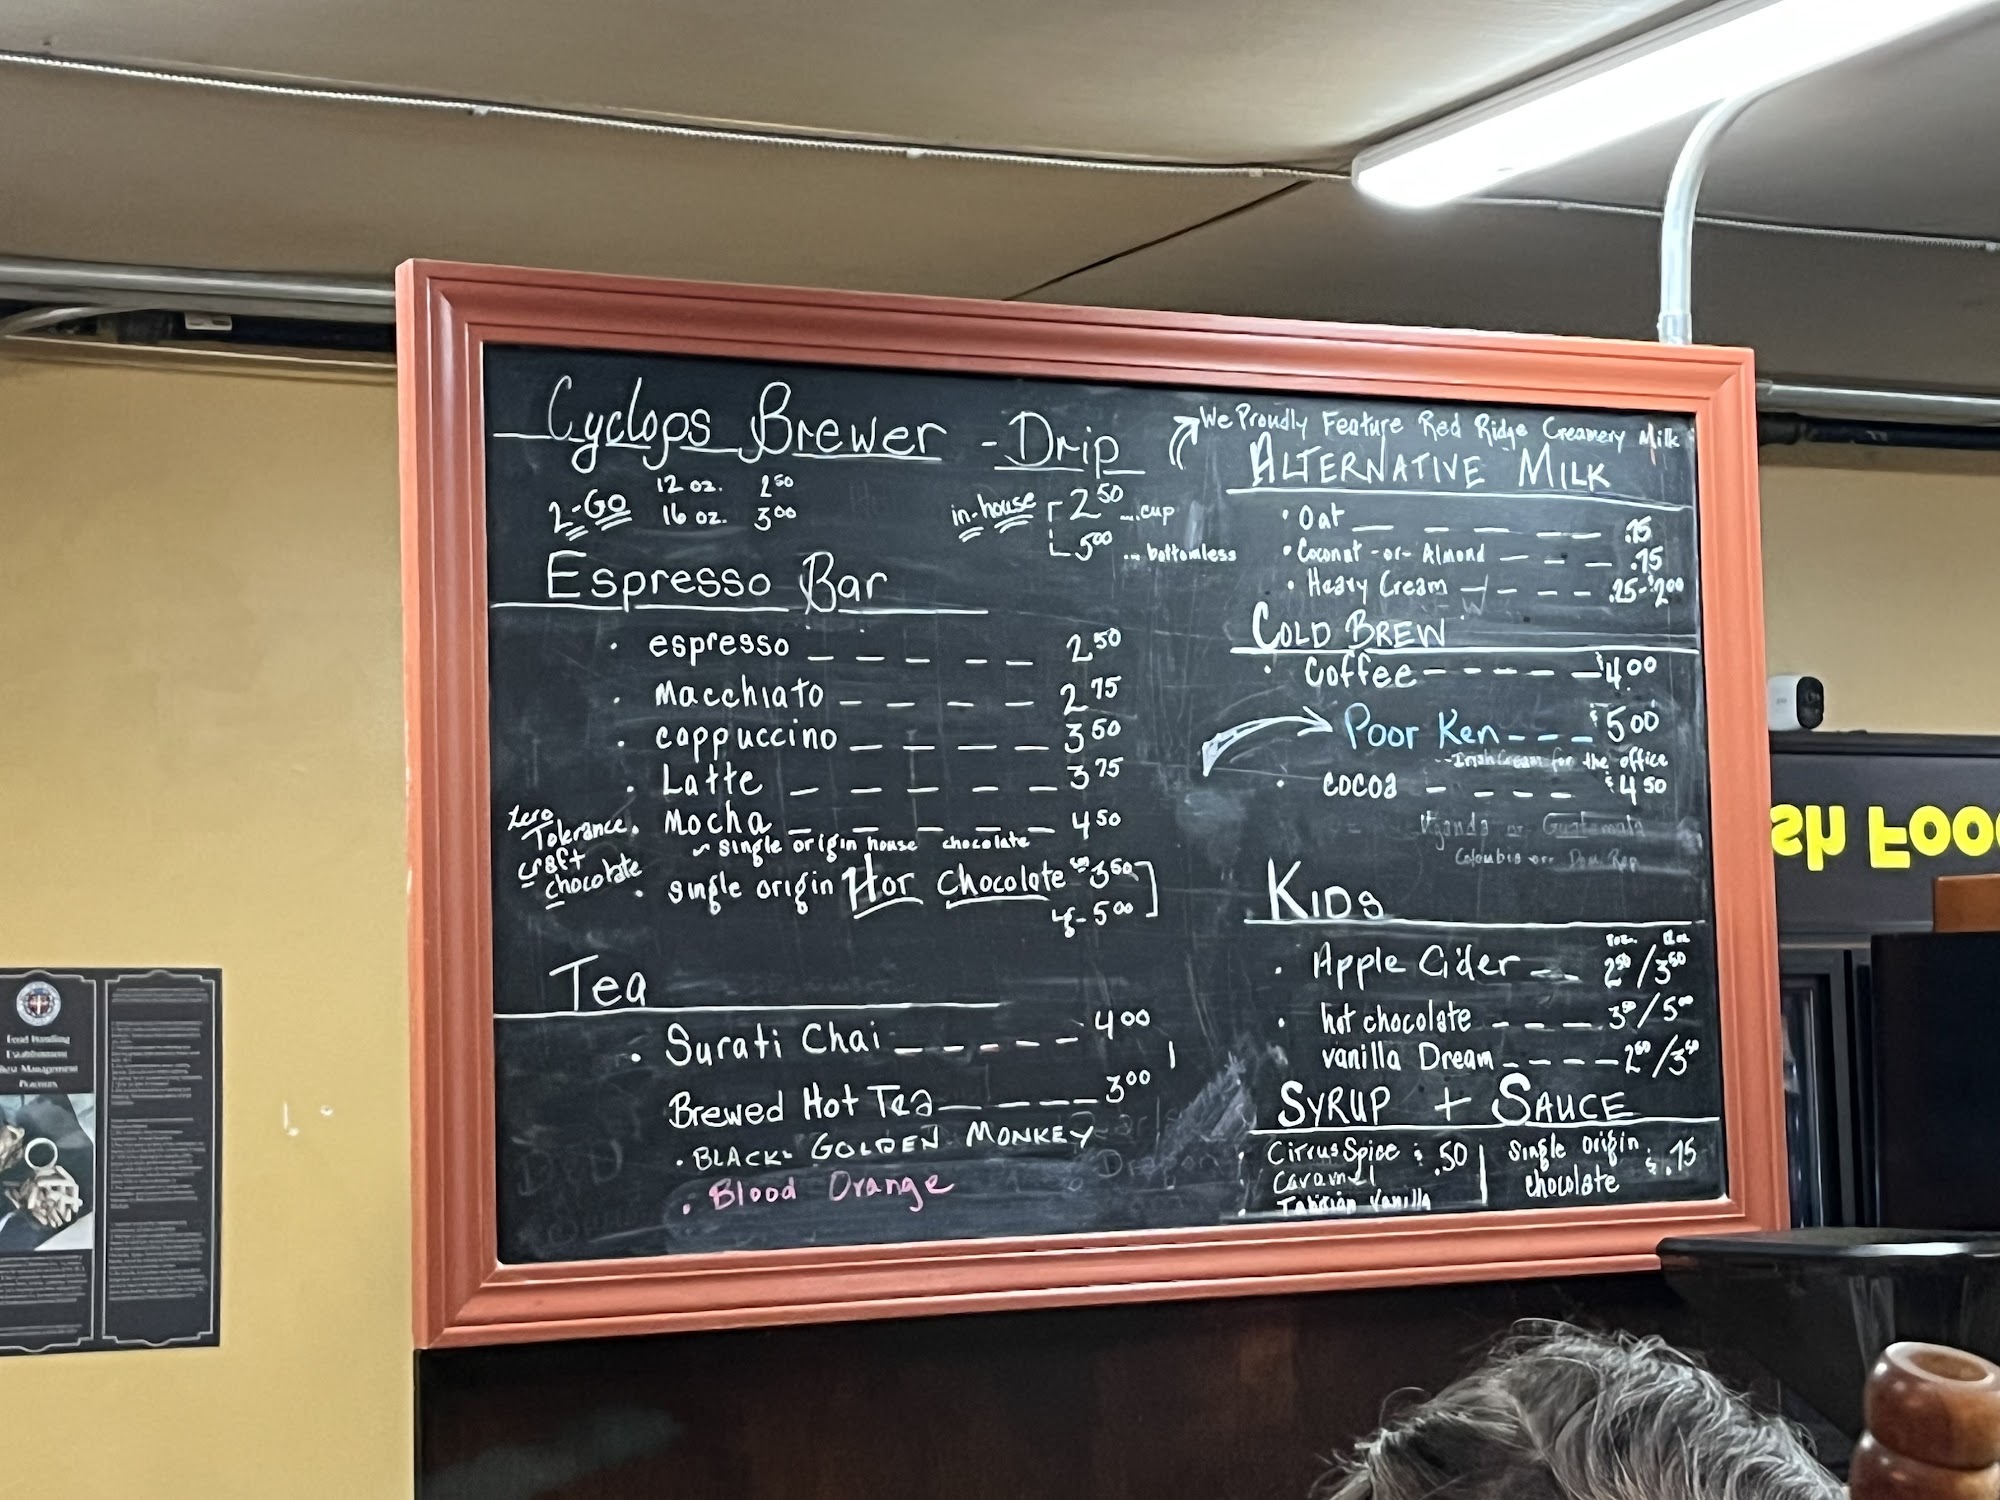 Cyclops Brewer - Drip
2-Go 12 oz. 2⁵⁰
16 oz. 3⁰⁰
in-house 2⁵⁰ ....cup
5⁰⁰ ... bottomless
Espresso Bar
· espresso _ _ _ _ _ 2⁵⁰
· Macchiato _ _ _ _ 2⁷⁵
· cappuccino _ _ _ _ _ 3⁵⁰
· Latte _ _ _ _ _ _ 3⁷⁵
· Mocha _ _ _ _ _ 4⁵⁰
~ single origin house chocolate
Zero
Tolerance
craft
chocolate
· single origin Hot Chocolate 3⁵⁰
5⁰⁰
Tea
· Surati Chai _ _ _ _ _ 4⁰⁰
Brewed Hot Tea _ _ _ _ _ 3⁰⁰
· Black- Golden Monkey
· Blood Orange
We Proudly Feature Red Ridge Creamery Milk
Alternative Milk
· Oat _ _ _ _ _ _ .75
· Coconut -or- Almond _ _ _ .75
· Heavy Cream _ _ _ _ .25-$2⁰⁰
Cold Brew
· Coffee - - - - - $4.00
Poor Ken - - - $5⁰⁰
--Irish Cream for the office
· cocoa - - - - $4⁵⁰
Uganda or Guatemala
Colombia or Dom. Rep
Kids
8oz. 12oz
· Apple Cider _ _ 2⁵⁰/3⁵⁰
· hot chocolate - - - - 3⁵⁰/5⁰⁰
vanilla Dream - - - - 2⁵⁰/3⁵⁰
Syrup + Sauce
· Citrus Spice : .50
Caramel
· Tahitian Vanilla
Single origin
chocolate : $.75
sh Foo
Food Handling
Establishment
Best Management
Practices